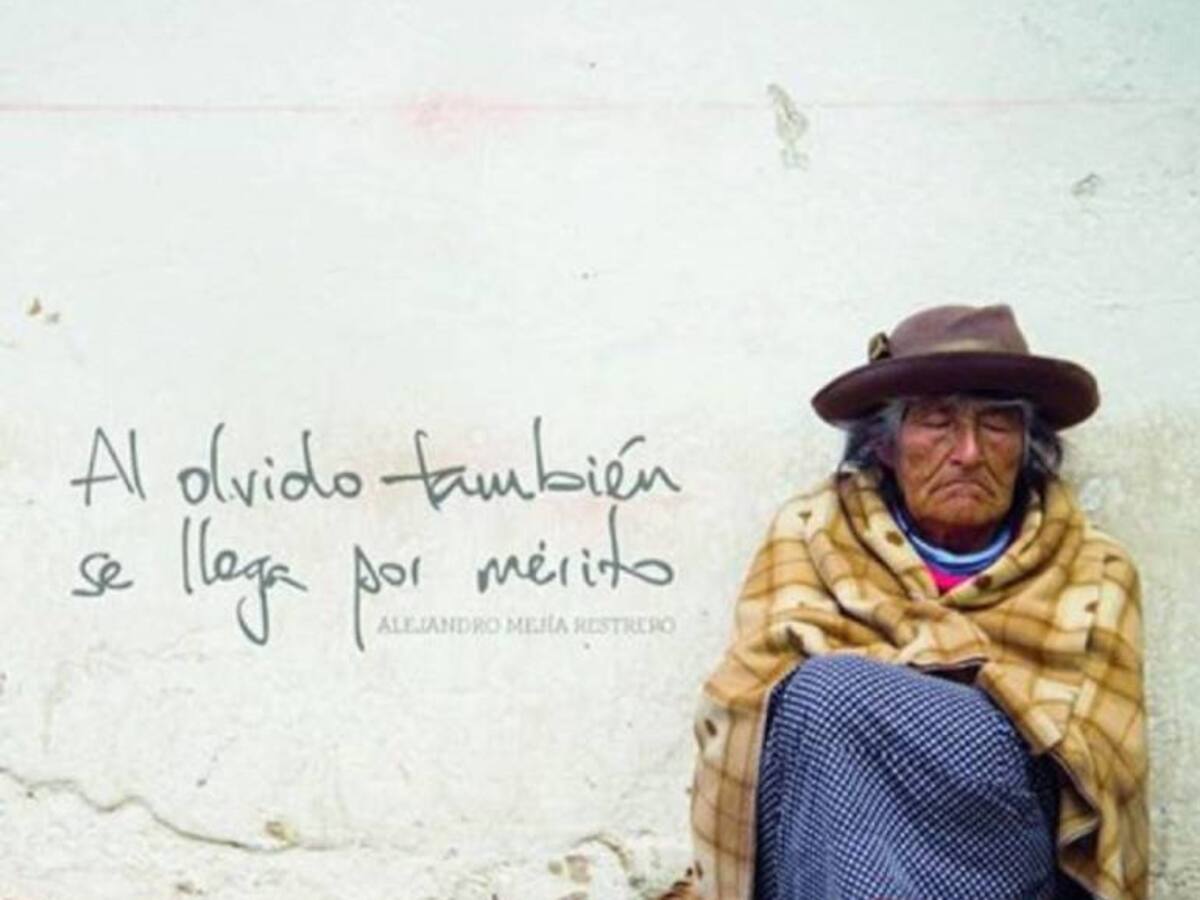 Al olvido también
se llega por mérito
ALEJANDRO MEJÍA RESTREPO